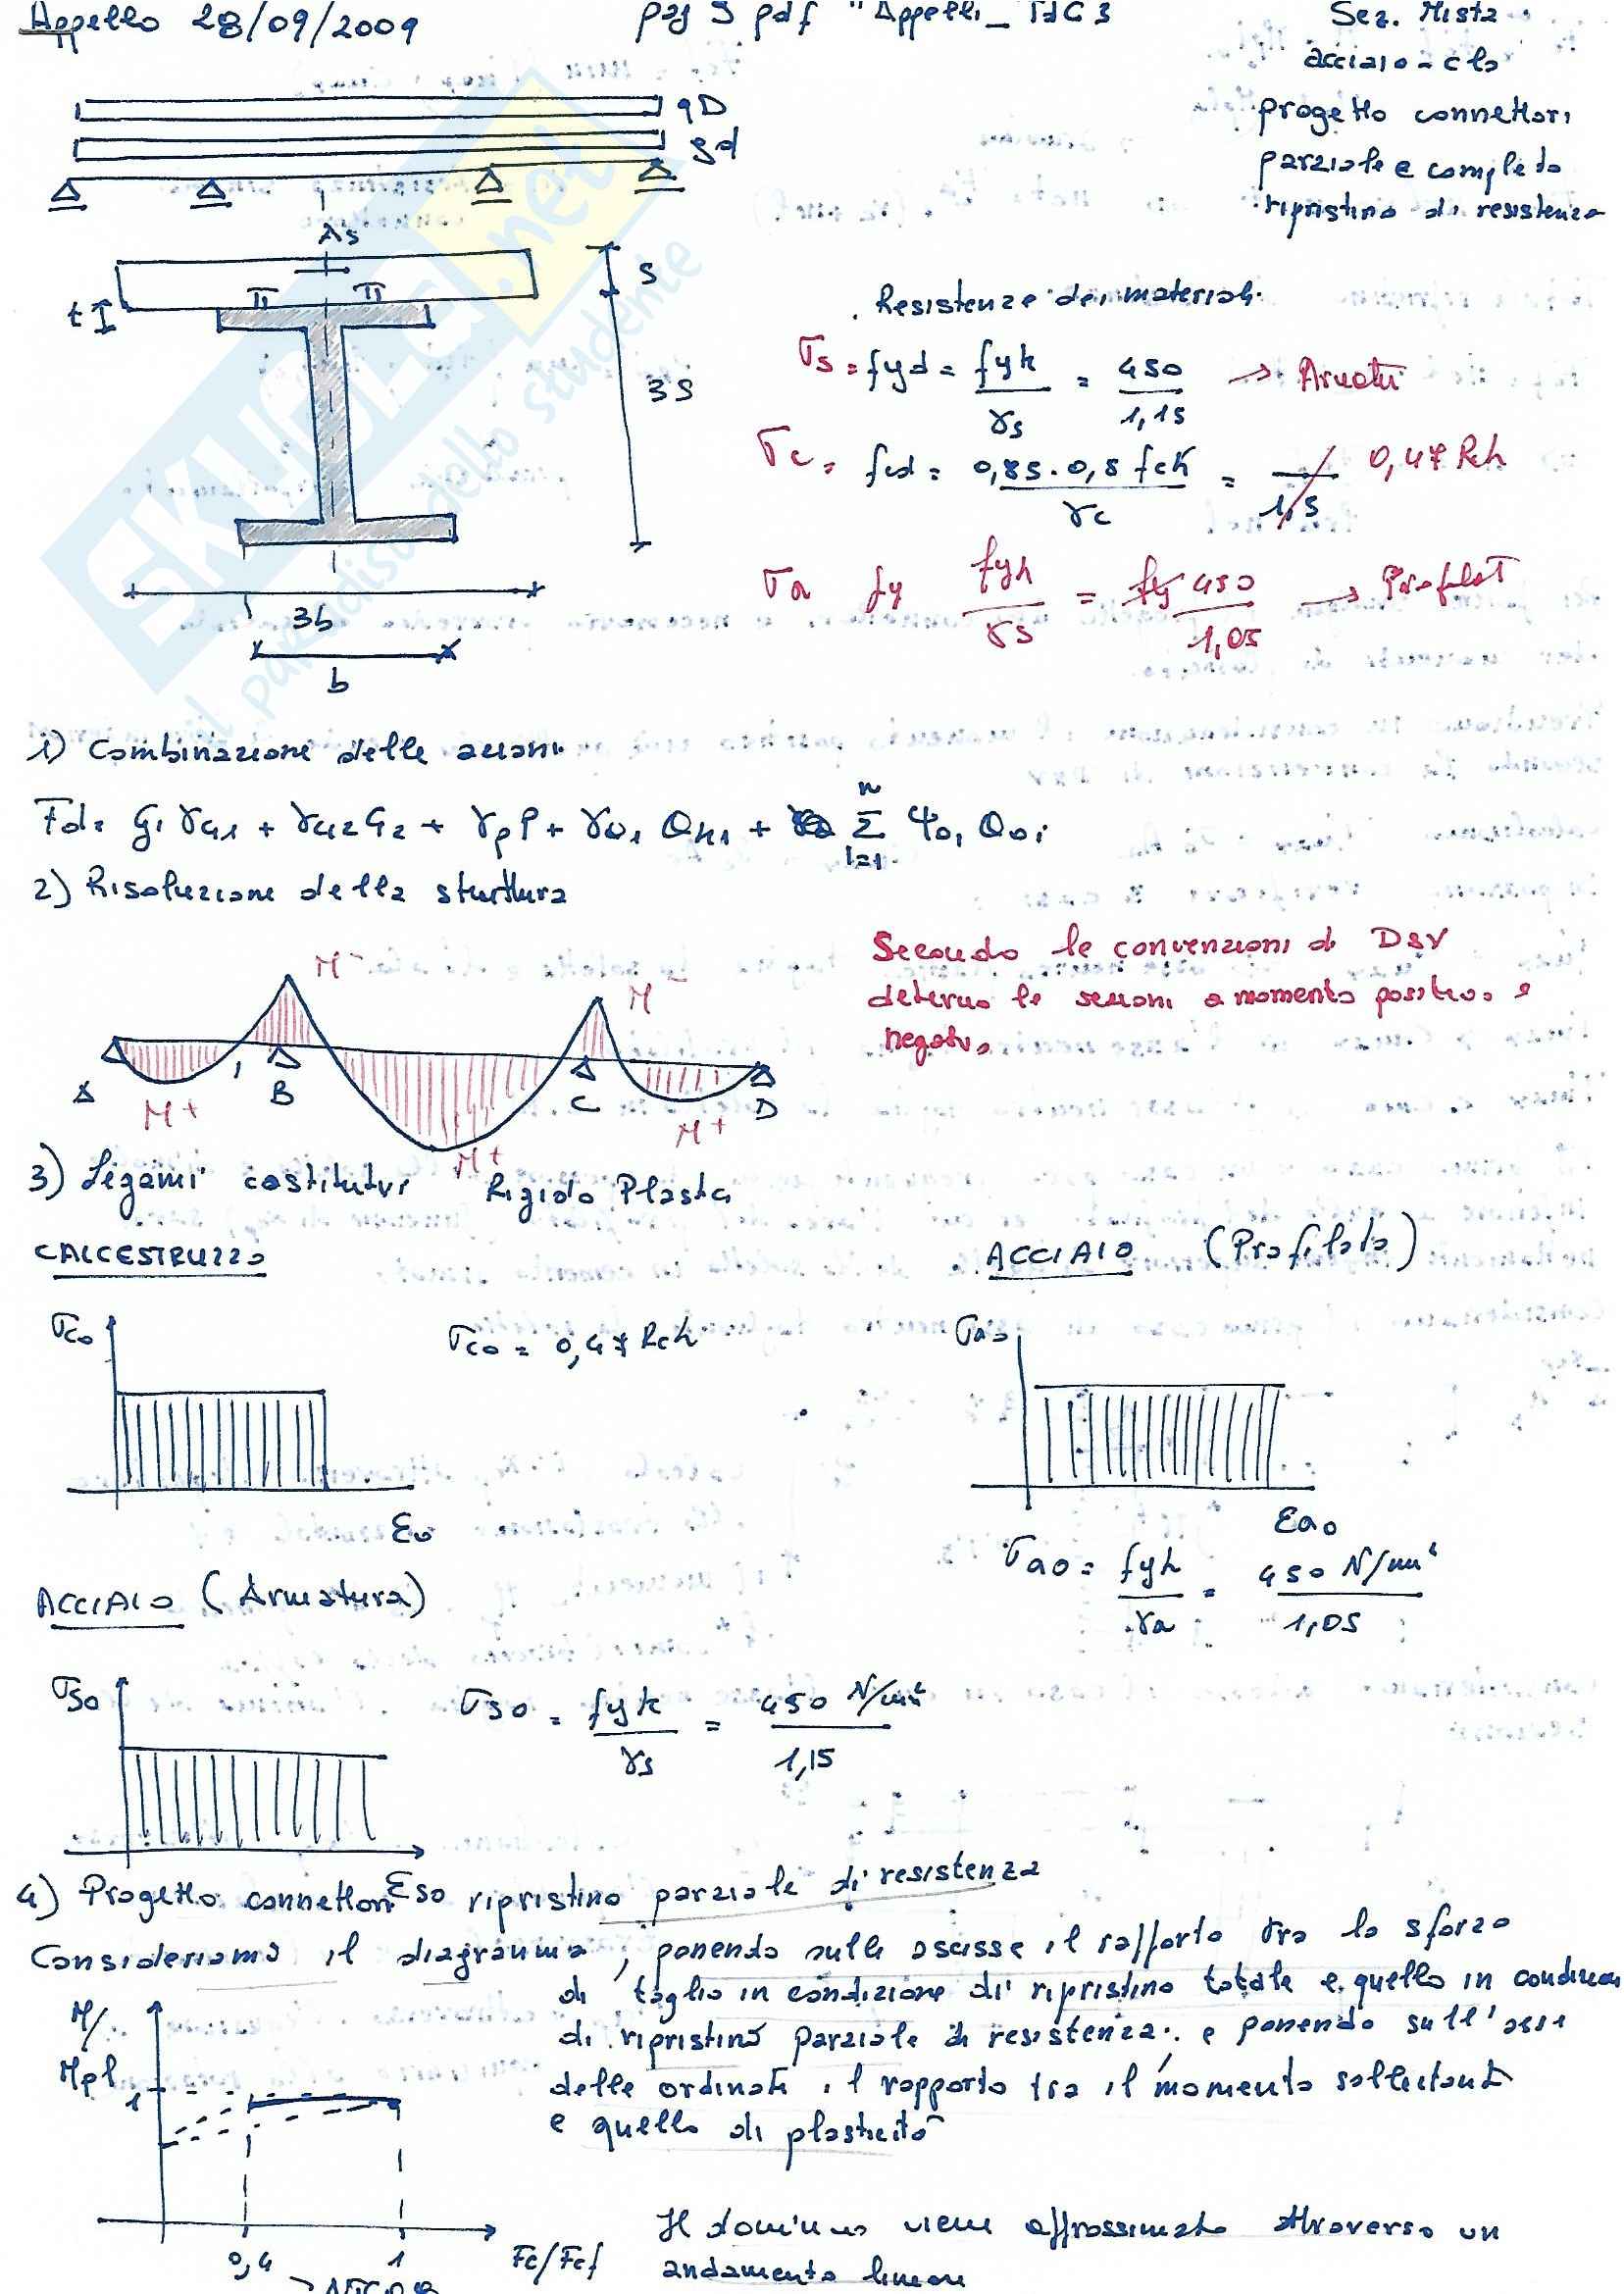 Appello 28/09/2009
pag 5 pdf "Appelli_TdC3
Sez. Mista
acciaio - cls
progetto connettori
parziale e completo
ripristino di resistenza
qD
gd
As
S
t
3S
3b
b
Resistenze dei materiali
σs = fyd = fyk/γs = 450/1,15 → Armatu
σc = fcd = 0,85·0,8 fck/γc = /1,5 0,47 Rck
σa fy fyk/γs = 450/1,05 → Profilat
1) Combinazione delle azioni
Fd = G1 γG1 + γG2 G2 + γp P + γQ1 Qk1 + Σ ψ0i Q0i
n
i=1
2) Risoluzione della sturttura
M-
M-
A
B
C
D
M+
M+
M+
Secondo le convenzioni di DSV
determo le sezioni a momento positivo e
negativo
3) Legami costitutivi Rigido Plastici
CALCESTRUZZO
σco
σco = 0,47 Rck
εo
ACCIAIO (Profilato)
σao
εao
σao = fyk/γa = 450 N/mm²/1,05
ACCIAIO (Armatura)
σso
σso = fyk/γs = 450 N/mm²/1,15
εso
4) Progetto connettori ripristino parziale di resistenza
Consideriamo il diagramma, ponendo sulle ascisse il rapporto tra lo sforzo
di taglio in condizione di ripristino totale e quello in condizioni
di ripristino parziale di resistenza; e ponendo sull'asse
delle ordinate il rapporto tra il momento sollecitante
e quello di plasticità
M/
Mpl
1
0,4
1
Fc/Fcf
Il dominio viene approssimato attraverso un
andamento lineare